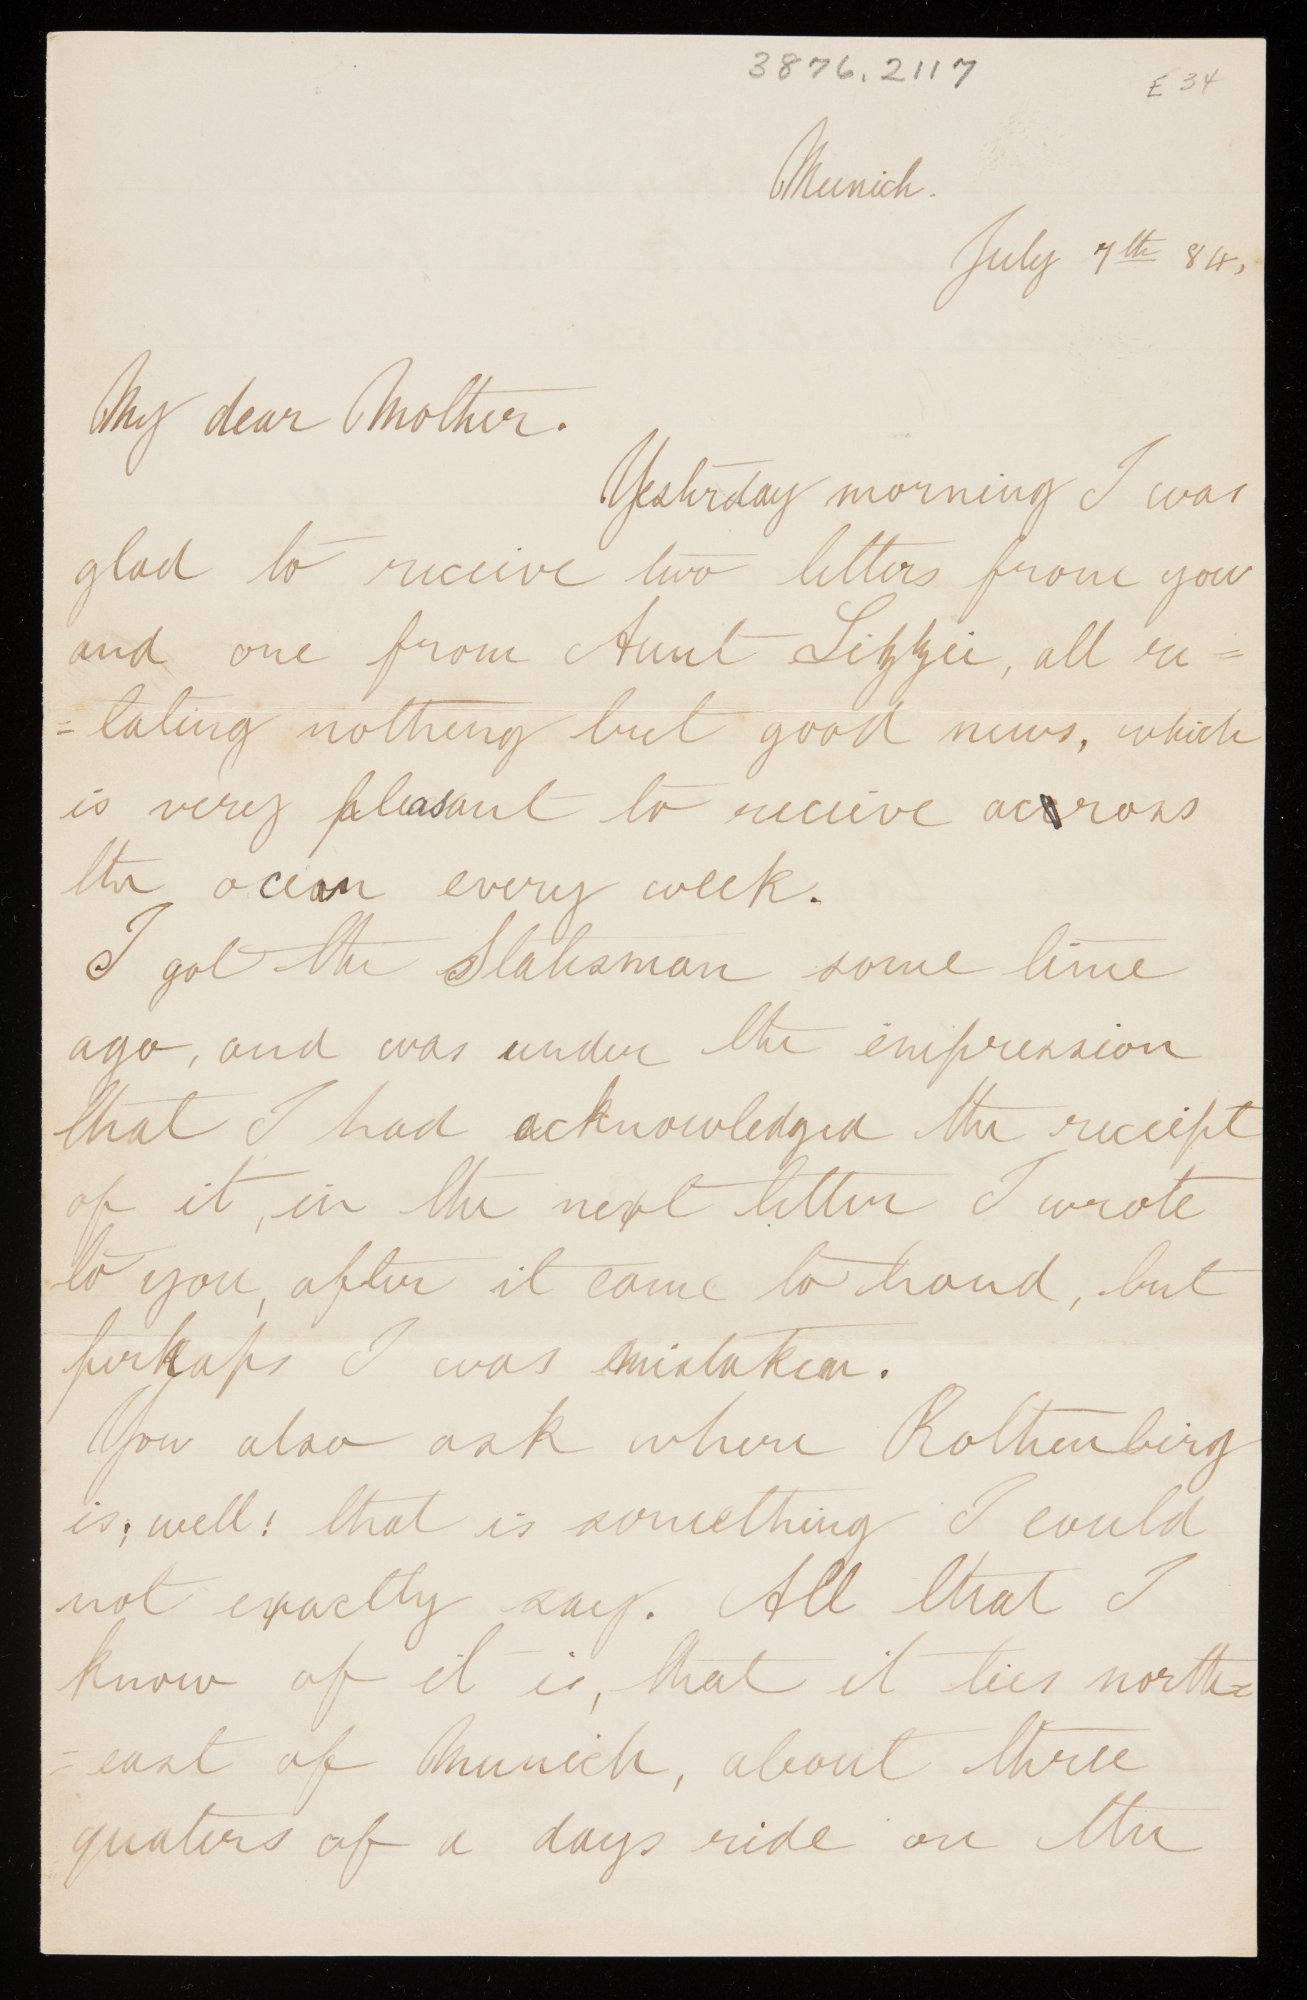 3876.2117
E 34
Munich.
July 7th 84,
My dear Mother.
Yesterday morning I was
glad to receive two letters from you
and one from Aunt Lizzie, all re=
=lating nothing but good news, which
is very pleasant to recieve across
the ocean every week.
I got the Statesman some time
ago, and was under the impression
that I had acknowledged the receipt
of it, in the next letter I wrote
to you, after it came to hand, but
perhaps I was mistaken.
You also ask where Rothenberg
is; well! that is something I could
not exactly say. All that I
know of it is, that it lies north=
=east of Munich, about three
quaters of a days ride on the